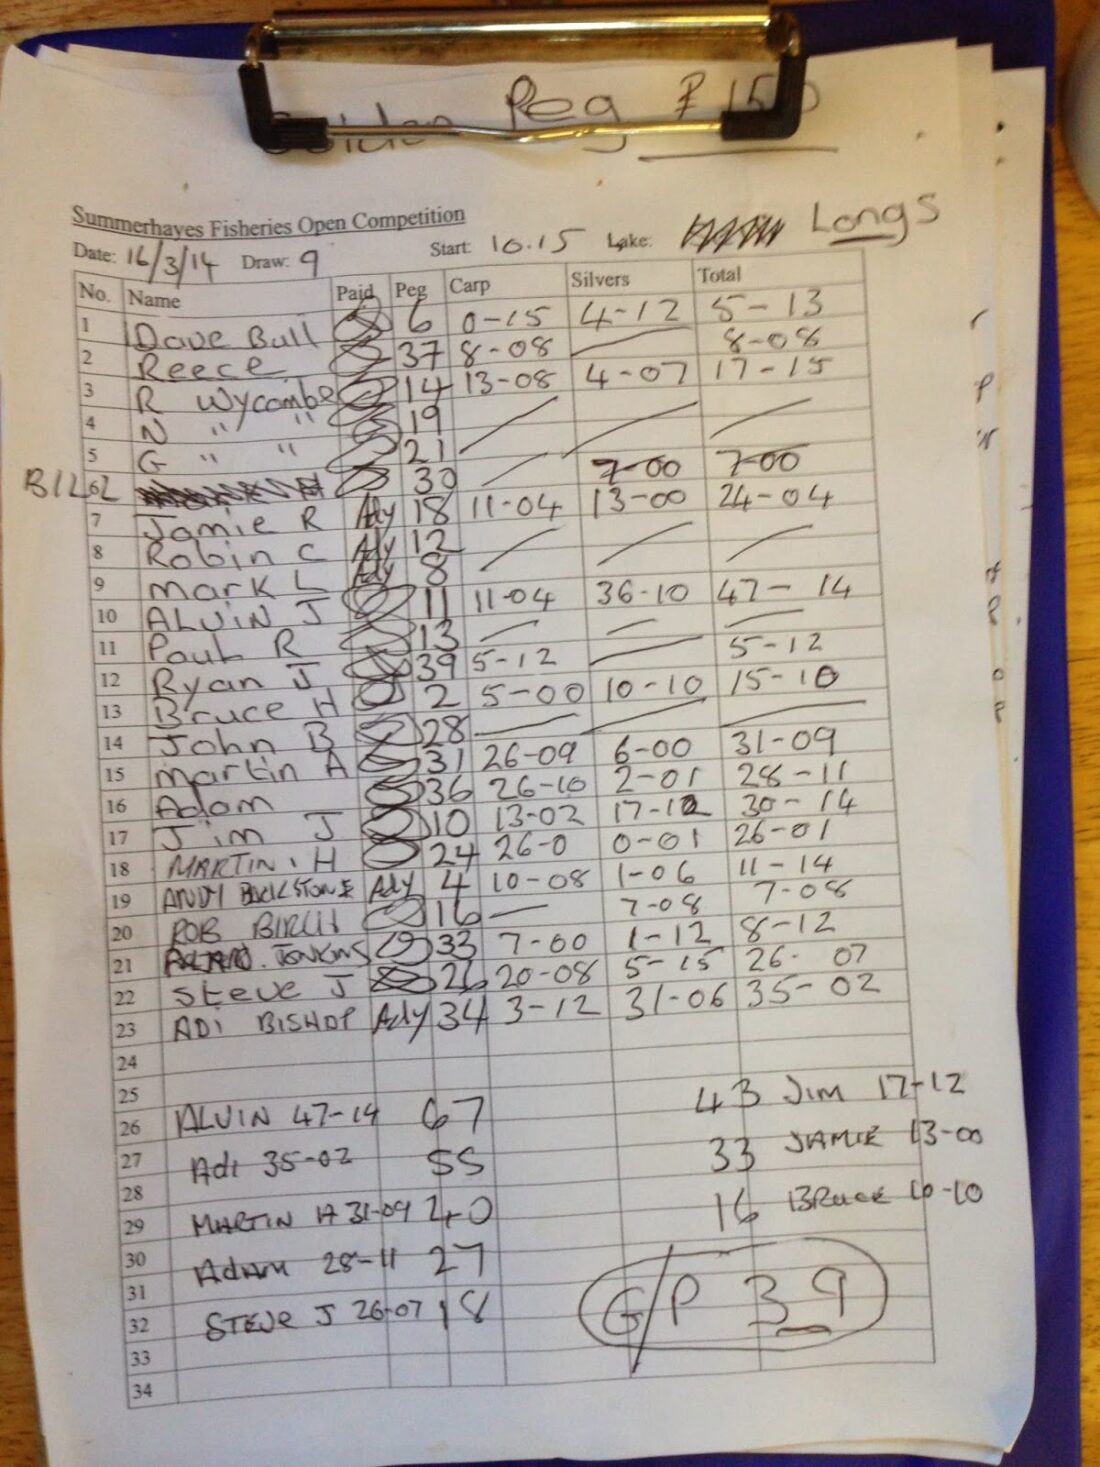 Golden Peg £150
Summerhayes Fisheries Open Competition
Date: 16/3/14 Draw: 9 Start: 10.15 Lake: Longs
No. Name Paid Peg Carp Silvers Total
1 Dave Bull 6 0-15 4-12 5-13
2 Reece 37 8-08 — 8-08
3 R Wycombe 14 13-08 4-07 17-15
4 N " " 19 / / /
5 G " " 21
BILL 6 30 / 7-00 7-00
7 Jamie R Ady 18 11-04 13-00 24-04
8 Robin C Ady 12 / / /
9 Mark L Ady 8
10 ALVIN J 11 11-04 36-10 47-14
11 Paul R 13 — — —
12 Ryan J 39 5-12 — 5-12
13 Bruce H 2 5-00 10-10 15-10
14 John B 28 — — —
15 Martin A 31 26-09 6-00 31-09
16 Adam 36 26-10 2-01 28-11
17 Jim J 10 13-02 17-12 30-14
18 MARTIN . H 24 26-0 0-01 26-01
19 ANDY 4 10-08 1-06 11-14
20 ROB BIRCH 16 — 7-08 7-08
21 JENKINS 33 7-00 1-12 8-12
22 Steve J 26 20-08 5-15 26-07
23 ADI BISHOP Ady 34 3-12 31-06 35-02
24
25 43 Jim 17-12
26 ALVIN 47-14 67
27 Adi 35-02 55 33 JAMIE 13-00
28
29 MARTIN A 31-09 40 16 BRUCE 10-10
30
31 Adam 28-11 27
32 STEVE J 26-07 18 G/P 39
33
34